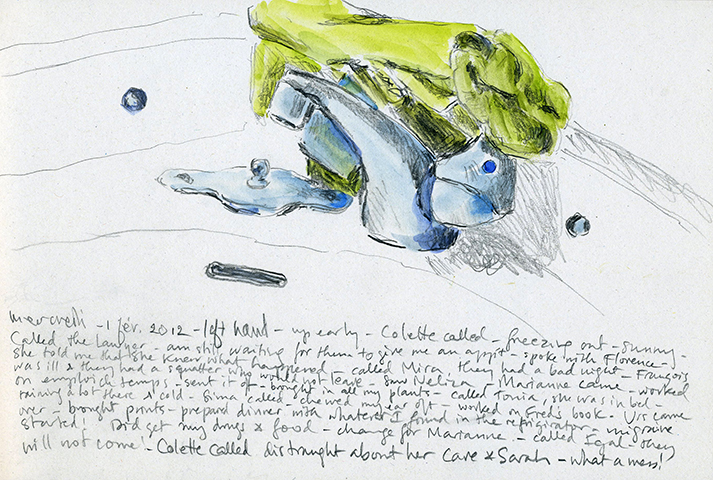 mercredi - 1 fév. 2012 - left hand - up early - Colette called - freezing out - sunny -
Called the lawyer - am still waiting for them to give me an appt - spoke with Florence - I
she told me that she knew what happened - called Mira, they had a bad night - François
was ill & they had a squatter who would not leave - Saw Neliza - Marianne came - worked
on temps - sent it off - brought in all my plants - called Tonia, she was in bed -
raining a lot there & cold - Sima called - chewed my ear off - worked on Fred's book. Urs came
over - brought prints - prepared dinner with whatever I found in the refrigirator - migraine
started! Did get my drugs & food - change for Marianne - called Igal - they
will not come! - Colette called distraught about her care & Sarah - what a mess!